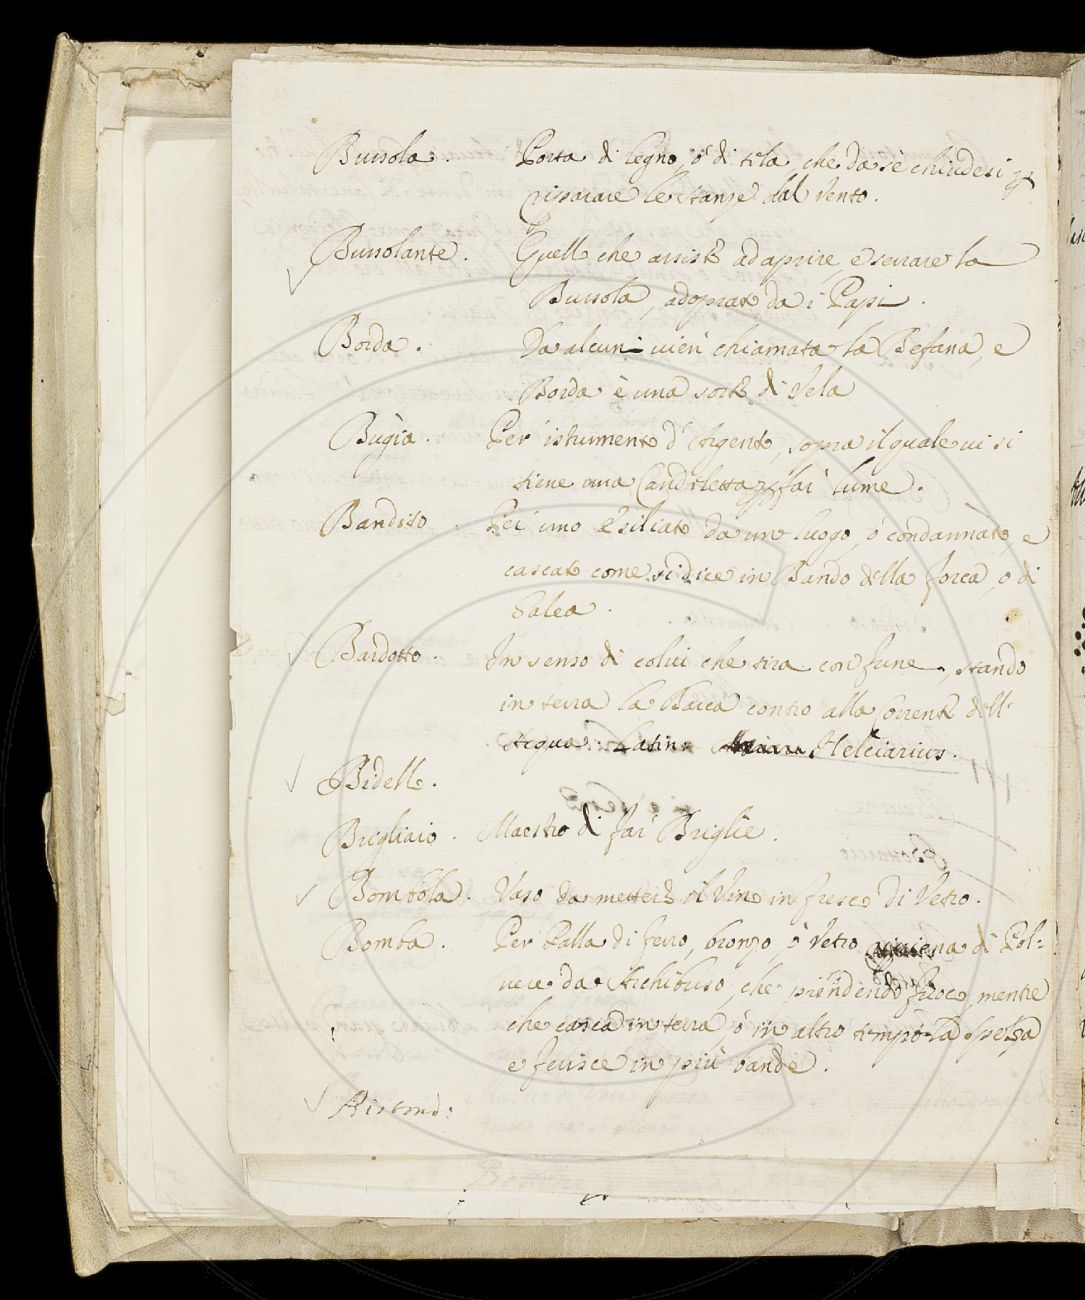 Bussola. Porta di legno, ó di tela che da sè chiudesi
riparare le stanze dal vento.
Bussolante. Quello che assiste ad aprire, e serrare la
Bussola, adoprato da i Papi.
Borda. Da alcuni vien chiamata la Befana, e
Borda è una sorte di vela
Bugìa. Per istrumento d'Argento, sopra il quale vi si
tiene una Candeletta far lume.
Bandito. Per uno esiliato da un luogo, ó condannato, e
cascato come si dice in Bando della forca, o di
Galea.
Bardotto. In senso di colui che tira con fune, stando
in terra la Barca contro alla Corrente dell'
Acqua. Latin: Helciarius.
Bidello.
Brigliaio. Maestro di far Briglie.
Bombola. Vaso da mettere il Vino in fresco di Vetro.
Bomba. Per Palla di ferro, bronzo, ó vetro di Pol=
vere da Archibuso, che prendendo fuoco, mentre
che casca in terra, ó in altro tempo la spezza
e ferisce in più bande.